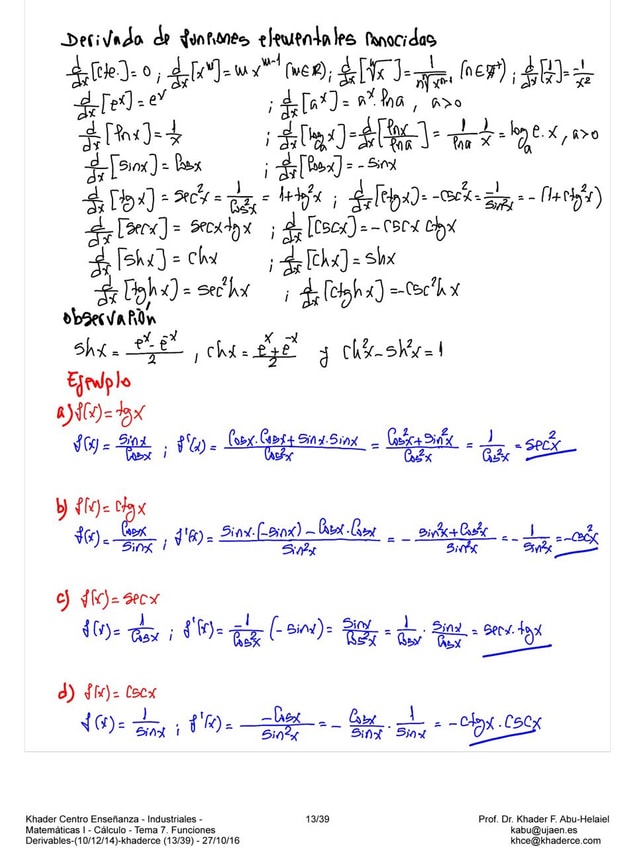 Derivada de funciones elementales conocidas
d/dx [cte.] = 0 ; d/dx [x^m] = m x^(m-1) (m∈ℝ) ; d/dx [ⁿ√x] = 1/(n ⁿ√x^(n-1)) (n∈ℤ⁺) ; d/dx [1/x] = -1/x²
d/dx [e^x] = e^x ; d/dx [a^x] = a^x · ln a , a>0
d/dx [ln x] = 1/x ; d/dx [log_a x] = d/dx [ln x/ln a] = 1/ln a · 1/x = log_a e . x , a>0
d/dx [sin x] = cos x ; d/dx [cos x] = - sin x
d/dx [tg x] = sec²x = 1/cos²x = 1+tg²x ; d/dx [ctg x) = -csc²x = -1/sin²x = -(1+ctg²x)
d/dx [sec x] = sec x tg x ; d/dx [csc x] = - csc x ctg x
d/dx [sh x] = ch x ; d/dx [ch x] = sh x
d/dx [tgh x] = sec²h x ; d/dx [ctgh x] = - csc²h x
Observación
sh x = (e^x - e^-x)/2 , ch x = (e^x + e^-x)/2 y ch²x - sh²x = 1
Ejemplo
a) f(x) = tg x
f(x) = sin x/cos x ; f'(x) = (cos x . cos x + sin x . sin x)/cos²x = (cos²x + sin²x)/cos²x = 1/cos²x = sec²x
b) f(x) = ctg x
f(x) = cos x/sin x ; f'(x) = (sin x . (-sin x) - cos x . cos x)/sin²x = - (sin²x + cos²x)/sin²x = - 1/sin²x = -csc²x
c) f(x) = sec x
f(x) = 1/cos x ; f'(x) = -1/cos²x (- sin x) = sin x/cos²x = 1/cos x · sin x/cos x = sec x . tg x
d) f(x) = csc x
f(x) = 1/sin x ; f'(x) = -cos x/sin²x = - cos x/sin x · 1/sin x = - ctg x . csc x
Khader Centro Enseñanza - Industriales -
Matemáticas I - Cálculo - Tema 7. Funciones
Derivables-(10/12/14)-khaderce (13/39) - 27/10/16
13/39
Prof. Dr. Khader F. Abu-Helaiel
kabu@ujaen.es
khce@khaderce.com